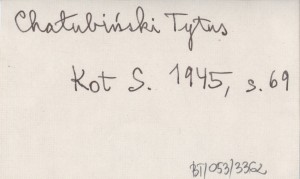 Chałubiński Tytus
Kot S. 1945, s. 69
BT/053/3362